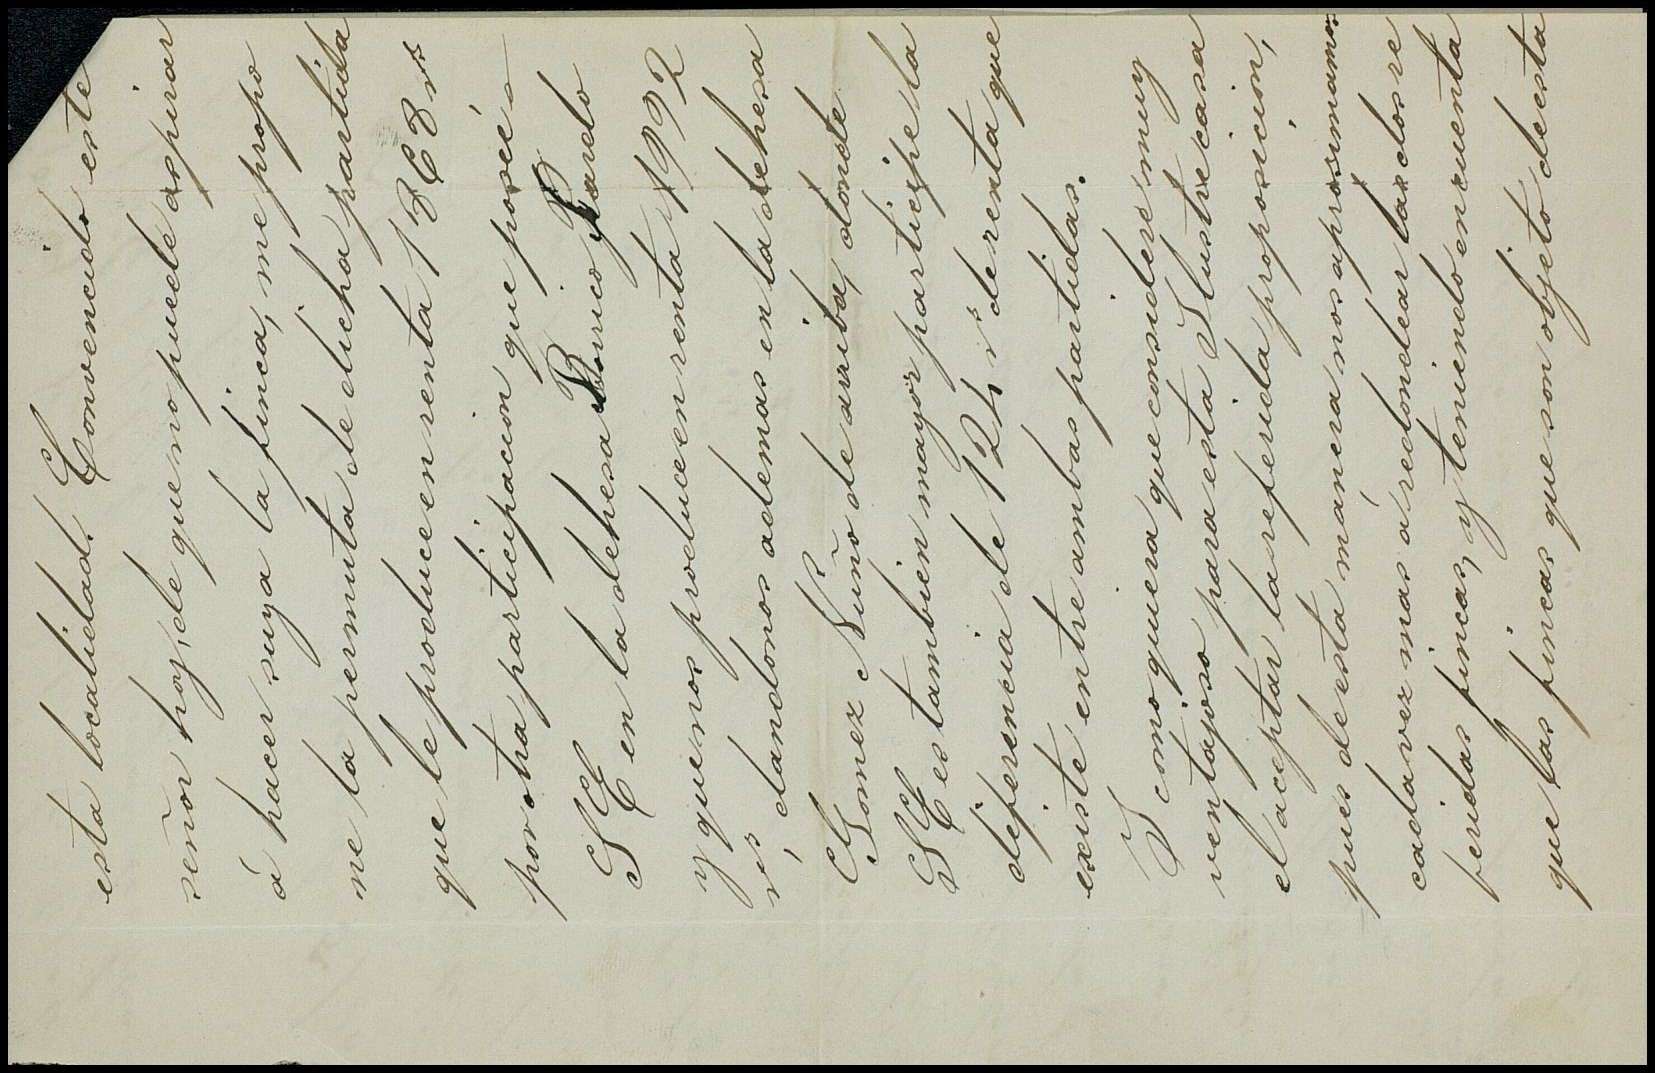 esta localidad. Convencido este
señor hoy, de que no puede aspirar
á hacer suya la finca, me propo
me la permuta de dicha partida
que le produce en renta 1868 rs
por otra participacion que posée
S E en la dehesa Borrico Pardo
y que nos produce en renta 1992
rs, dandonos ademas en la dehesa
Gomez Nuño de arriba, donde
S E es tambien mayor participe la
diferencia de 124 rs de renta que
existe entre ambas partidas.
Y como quiera que considere muy
ventajoso para esta Ilustre casa
el aceptar la referida proposicion,
pues de esta manera nos aprosimamos
cada vez mas á redondear las dos re
feridas fincas, y teniendo en cuenta
que las fincas que son objeto de esta